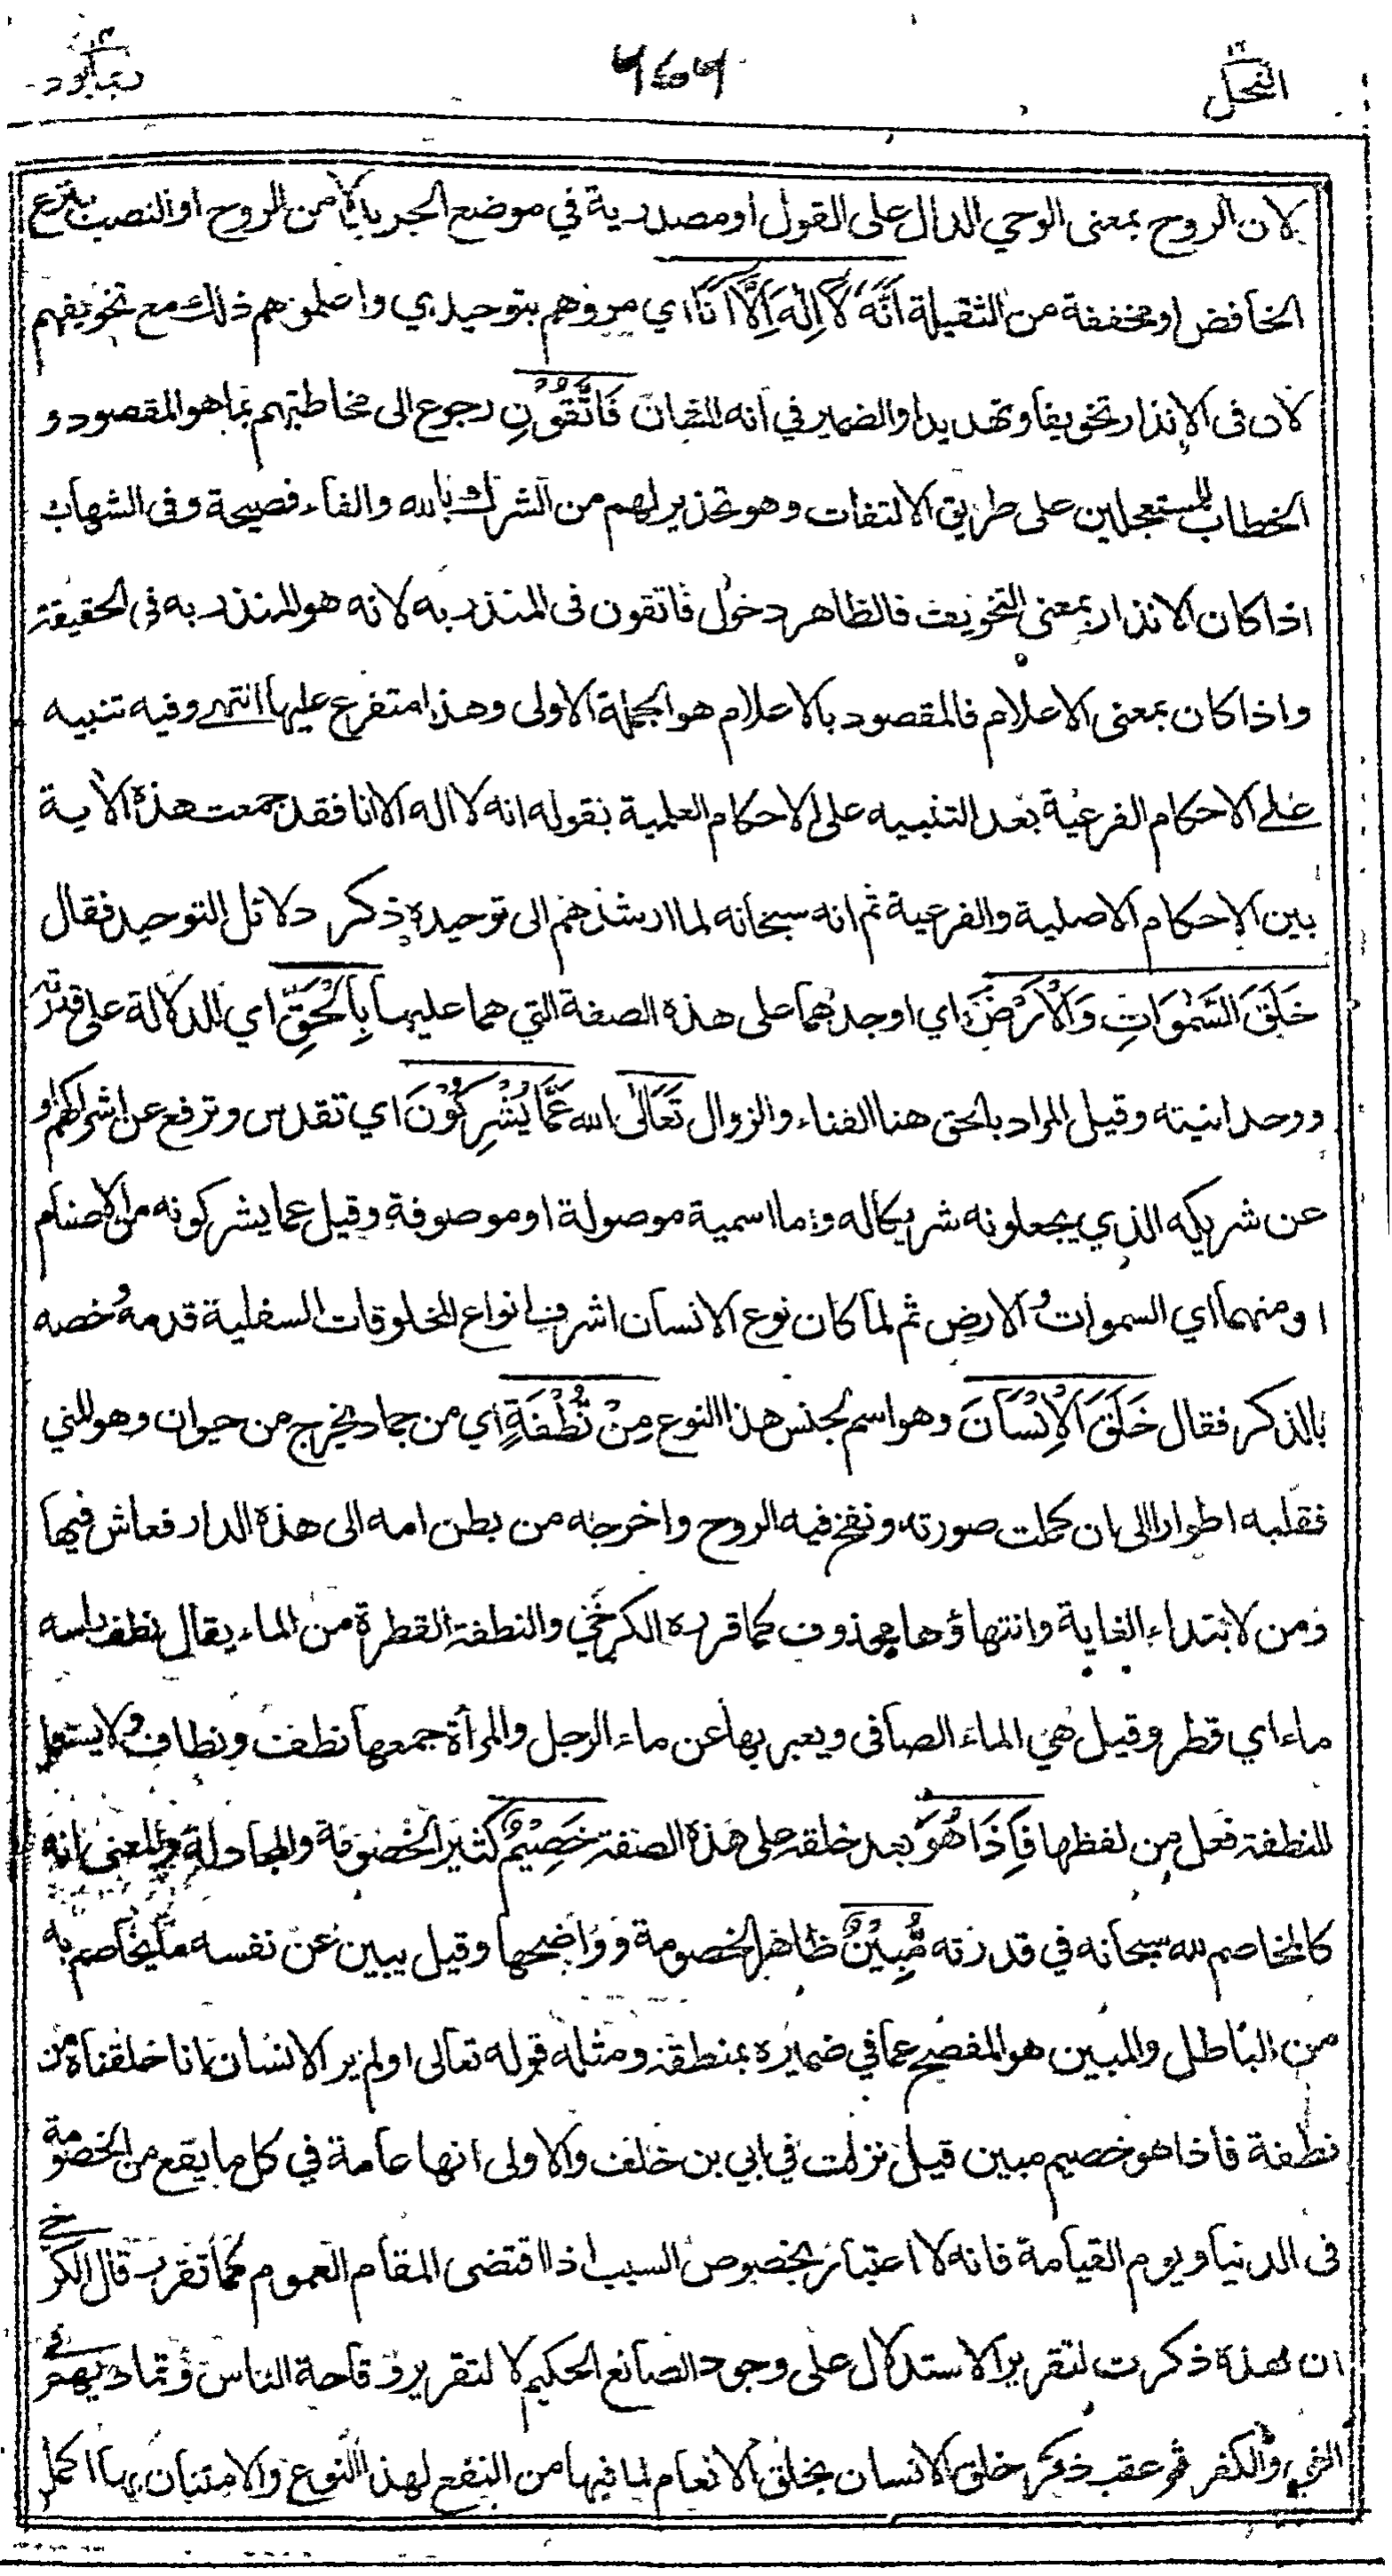 النحل
١٦
٧٦٧
ربما
١٤
لان الروح بمعنى الوحي الدال على القول او مصدرية في موضع الجر بدلا من الروح او النصب بنزع
الخافض او مخففة من الثقيلة اَنَّهٗ لَاۤ اِلٰهَ اِلَّاۤ اَنَا اي مروهم بتوحيدي واعلموهم ذلك مع تخويفهم
لان في الانذار تخويفا وتهديدا والضمير في انه للشان فَاتَّقُوْنِ رجوع الى مخاطبتهم بما هو المقصود و
الخطاب للمستعجلين على طريق الالتفات وهو تحذير لهم من الشرك بالله والفاء فصيحة وفي الشهاب
اذا كان الانذار بمعنى التخويف فالظاهر دخول فاتقون في المنذر به لانه هو المنذر به في الحقيقة
واذا كان بمعنى الاعلام فالمقصود بالاعلام هو الجملة الاولى وهذا متفرع عليها انتهى وفيه تنبيه
على الاحكام الفرعية بعد التنبيه على الاحكام العلمية بقوله انه لا اله الا انا فقد جمعت هذه الآية
بين الاحكام الاصلية والفرعية ثم انه سبحانه لما ارشدهم الى توحيده ذكر دلائل التوحيد فقال
خَلَقَ السَّمٰوَاتِ وَالْاَرْضَ اي اوجدهما على هذه الصفة التي هما عليها بِالْحَقِّ اي للدلالة على قدرته
ووحدانيته وقيل المراد بالحق هنا الفناء والزوال تَعَالٰى الله عَمَّا يُشْرِكُوْنَ اي تقدس وترفع عن اشراكهم او
عن شريكه الذي يجعلونه شريكا له وما اسمية موصولة او موصوفة وقيل عما يشركونه من الاصنام
او منهما اي السموات والارض ثم لما كان نوع الانسان اشرف انواع المخلوقات السفلية قدمه وخصه
بالذكر فقال خَلَقَ الْاِنْسَانَ وهو اسم لجنس هذا النوع مِنْ نُّطْفَةٍ اي من جماد يخرج من حيوان وهو المني
فقلبه اطوارا الى ان كملت صورته ونفخ فيه الروح واخرجه من بطن امه الى هذه الدار فعاش فيها
ومن لابتداء الغاية وانتهاؤها محذوف كما قرره الكرخي والنطفة القطرة من الماء يقال نطف راسه
ماء اي قطر وقيل هي الماء الصافي ويعبر بها عن ماء الرجل والمرأة جمعها نطف ونطاف ولا يستعمل
للنطفة فعل من لفظها فَاِذَا هُوَ بعد خلقه على هذه الصفة خَصِيْمٌ كثير الخصومة والمجادلة والمعنى انه
كالمخاصم لله سبحانه في قدرته مُّبِيْنٌ ظاهر الخصومة وواضحها وقيل يبين عن نفسه ما يخاصم به
من الباطل والمبين هو المفصح عما في ضميره بمنطقه ومثله قوله تعالى اولم ير الانسان انا خلقناه من
نطفة فاذا هو خصيم مبين قيل نزلت في ابي بن خلف والاولى انها عامة في كل ما يقع من الخصومة
في الدنيا ويوم القيامة فانه لا اعتبار بخصوص السبب اذا اقتضى المقام العموم كما تقرر قال الكرخي
ان هذه ذكرت لتقرير الاستدلال على وجود الصانع الحكيم لا لتقرير وقاحة الناس وتماديهم في
الغي والكفر ثم عقب ذكر خلق الانسان بخلق الانعام لما فيها من النفع لهذا النوع والامتنان بها اكمل